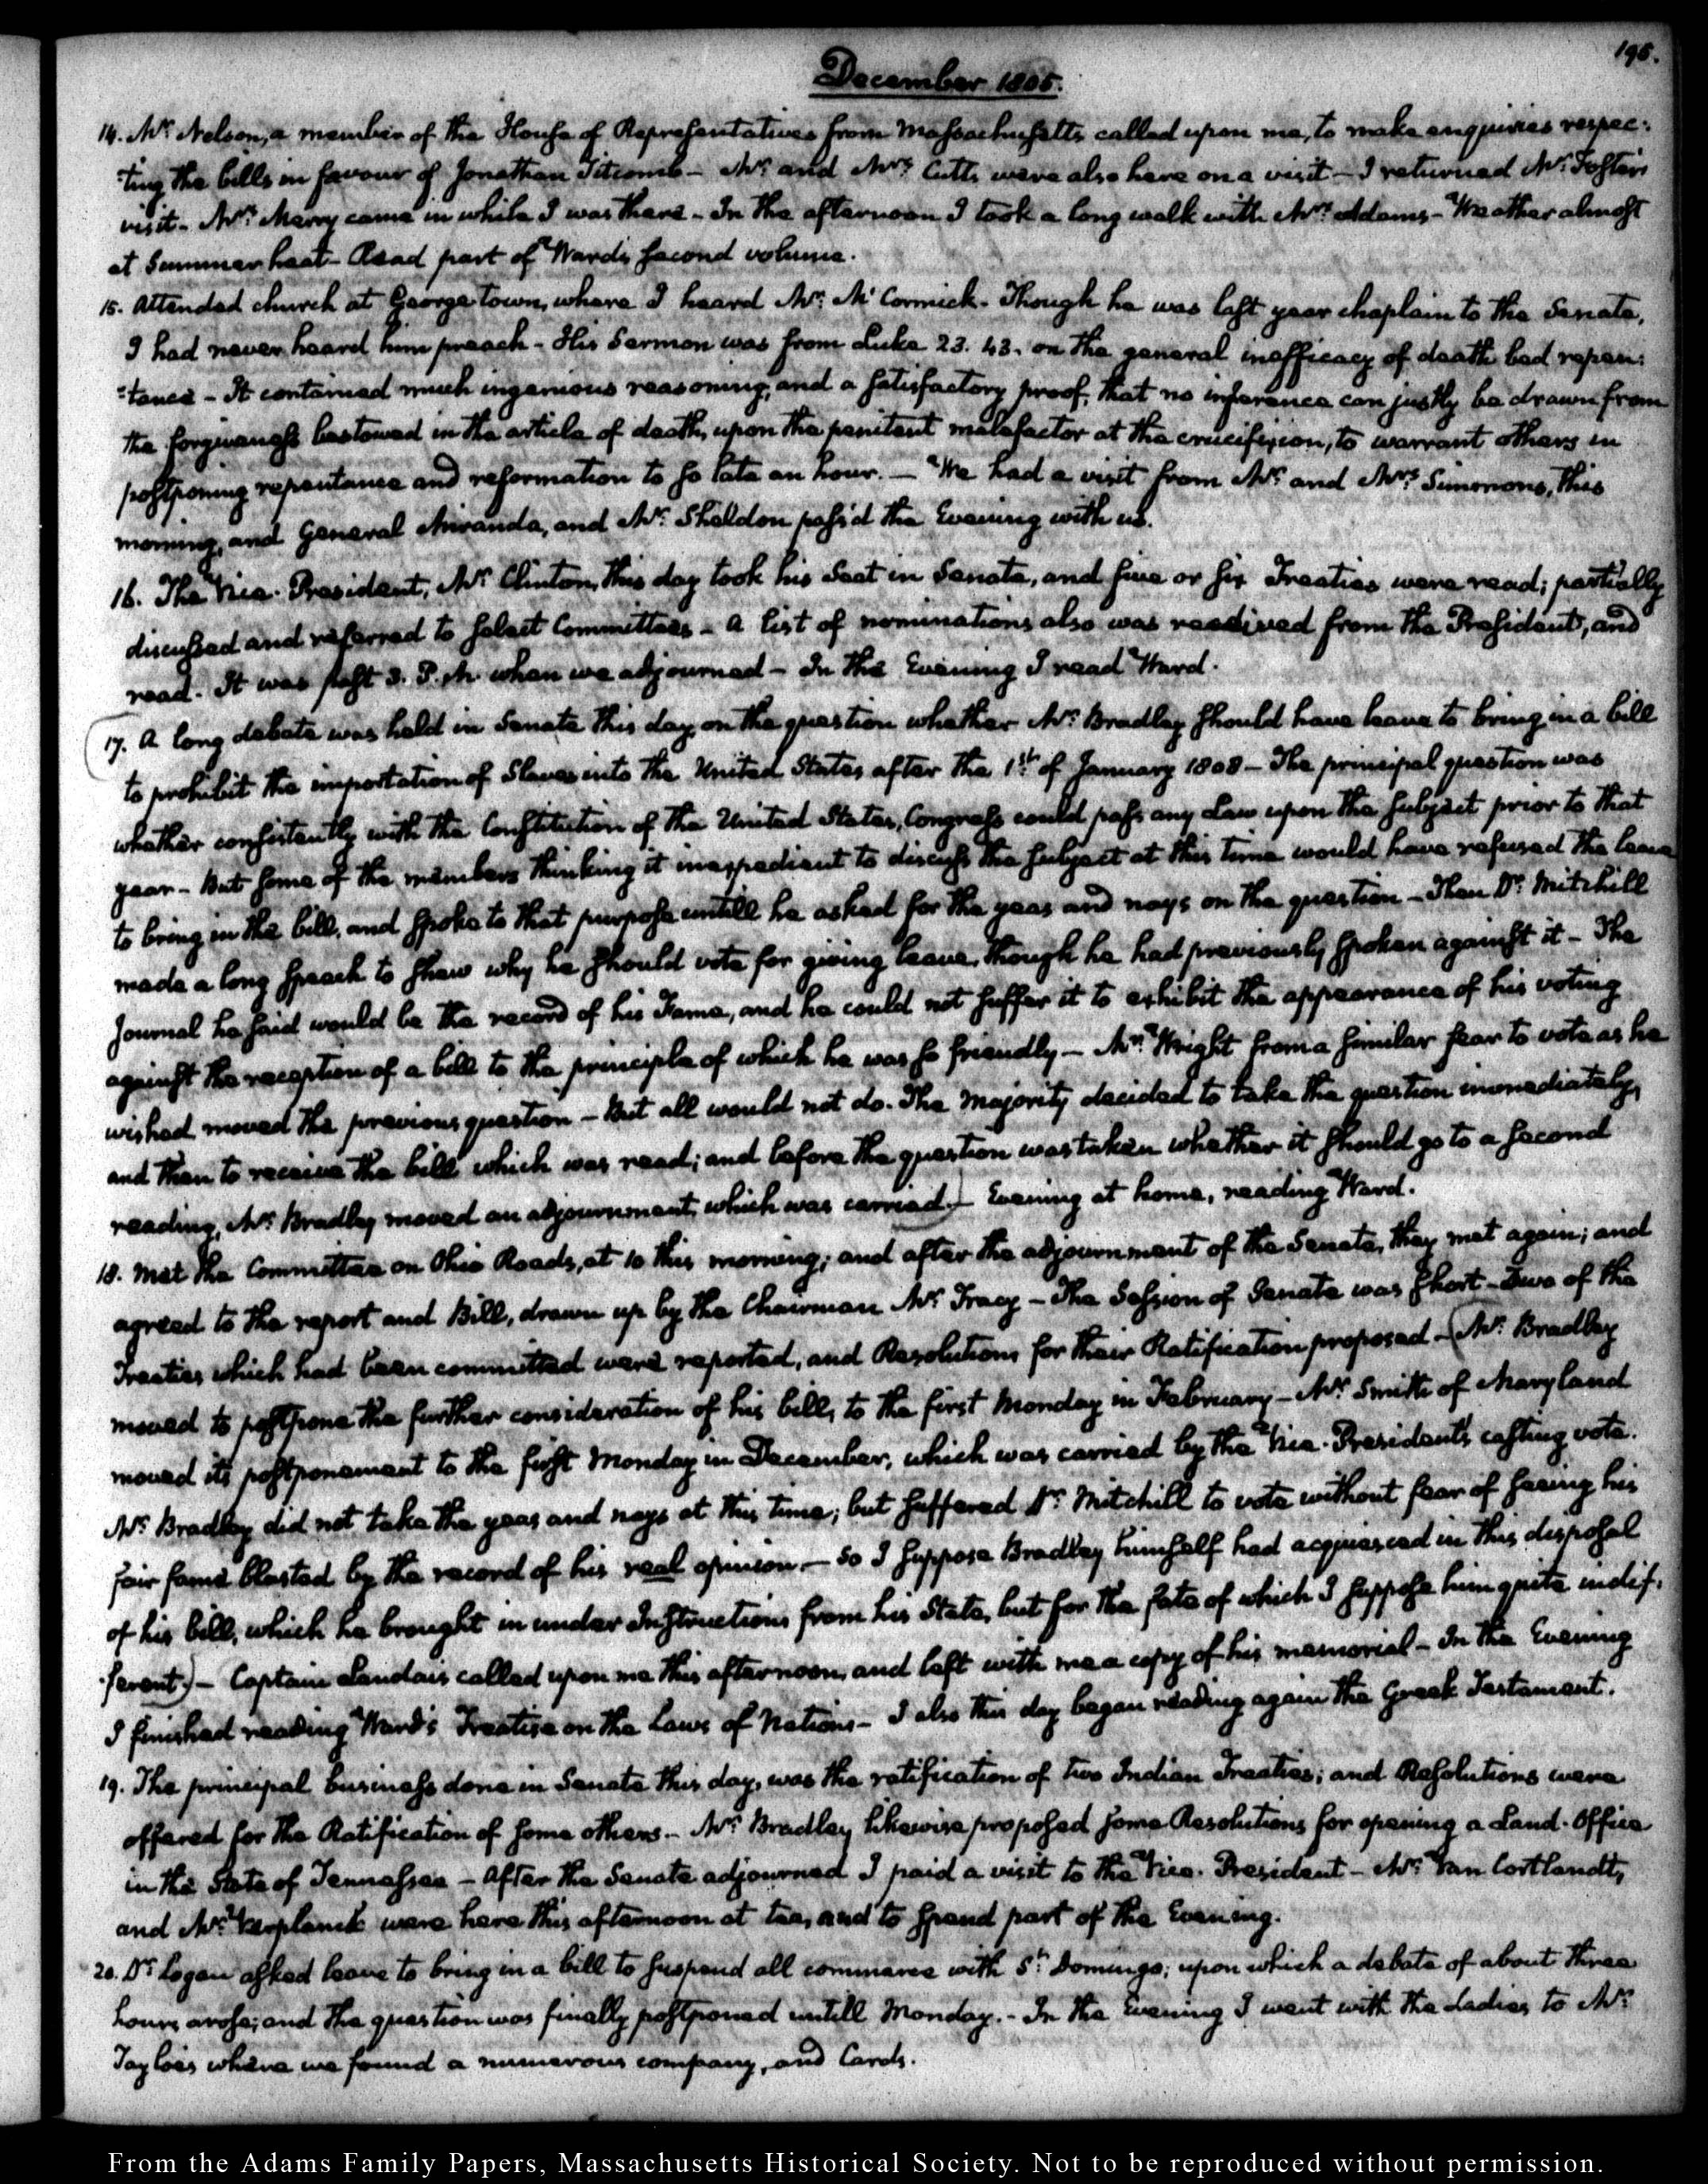 195.
December 1805.
14. Mr. Nelson, a member of the House of Representatives from Massachusetts called upon me, to make enquiries respec:
:ting the bills in favour of Jonathan Titcomb – Mr. and Mrs. Cutts were also here on a visit – I returned Mr. Foster's
visit – Mrs. Merry came in while I was there – In the afternoon I took a long walk with Mrs. Adams – Weather almost
at Summer heat – Read part of Ward's second volume.
15. Attended church at George town, where I heard Mr. McCormick – Though he was last year chaplain to the Senate,
I had never heard him preach – His Sermon was from Luke 23. 43. on the general inefficacy of death bed repen:
:tance – It contained much ingenious reasoning, and a satisfactory proof, that no inference can justly be drawn from
the forgiveness bestowed in the article of death, upon the penitent malefactor at the crucifixion, to warrant others in
postponing repentance and reformation to so late an hour. – We had a visit from Mr. and Mrs. Simmons, this
morning, and General Miranda, and Mr. Sheldon pass'd the Evening with us.
16. The Vice-President, Mr. Clinton, this day took his Seat in Senate, and five or six Treaties were read; partially
discussed and referred to select Committees – A list of nominations also was received from the President, and
read. It was past 3. P.M. when we adjourned – In the Evening I read Ward.
17. A long debate was held in Senate this day, on the question whether Mr. Bradley should have leave to bring in a bill
to prohibit the importation of Slaves into the United States after the 1st. of January 1808 – The principal question was
whether consistently with the Constitution of the United States, Congress could pass any Law upon the subject prior to that
year – But some of the members thinking it inexpedient to discuss the subject at this time would have refused the leave
to bring in the bill, and spoke to that purpose untill he asked for the yeas and nays on the question – Then Dr. Mitchill
made a long speech to shew why he should vote for giving leave, though he had previously spoken against it – The
Journal he said would be the record of his Fame, and he could not suffer it to exhibit the appearance of his voting
against the reception of a bill to the principle of which he was so friendly – Mr. Wright from a similar fear to vote as he
wished moved the previous question – But all would not do. The Majority decided to take the question immediately,
and then to receive the bill which was read; and before the question was taken whether it should go to a second
reading, Mr. Bradley moved an adjournment, which was carried) – Evening at home, reading Ward.
18. Met the Committee on Ohio Roads, at 10 this morning; and after the adjournment of the Senate, they met again; and
agreed to the report and Bill, drawn up by the Chairman Mr. Tracy – The Session of Senate was short – Two of the
Treaties which had been committed were reported, and Resolutions for their Ratification proposed – (Mr. Bradley
moved to postpone the further consideration of his bill, to the first Monday in February – Mr. Smith of Maryland
moved its postponement to the first Monday in December, which was carried by the Vice-President's casting vote.
Mr. Bradley did not take the yeas and nays at this time; but suffered Dr. Mitchill to vote without fear of seeing his
fair fame blasted by the record of his real opinion – So I suppose Bradley himself had acquiesced in this disposal
of his bill, which he brought in under Instructions from his State, but for the fate of which I suppose him quite indif:
:ferent.) – Captain Landais called upon me this afternoon, and left with me a copy of his memorial – In the Evening
I finished reading Ward's Treatise on the Laws of Nations – I also this day began reading again the Greek Testament.
19. The principal business done in Senate this day, was the ratification of two Indian Treaties; and Resolutions were
offered for the Ratification of some others – Mr. Bradley likewise proposed some Resolutions for opening a Land-Office
in the State of Tennessee – After the Senate adjourned I paid a visit to the Vice-President – Mr. Van Cortlandt,
and Mr. Verplanck were here this afternoon at tea, and to spend part of the Evening.
20. Dr. Logan asked leave to bring in a bill to suspend all commerce with St. Domingo; upon which a debate of about three
hours arose; and the question was finally postponed untill Monday. – In the Evening I went with the Ladies to Mr.
Tayloe's where we found a numerous company, and Cards.
From the Adams Family Papers, Massachusetts Historical Society. Not to be reproduced without permission.